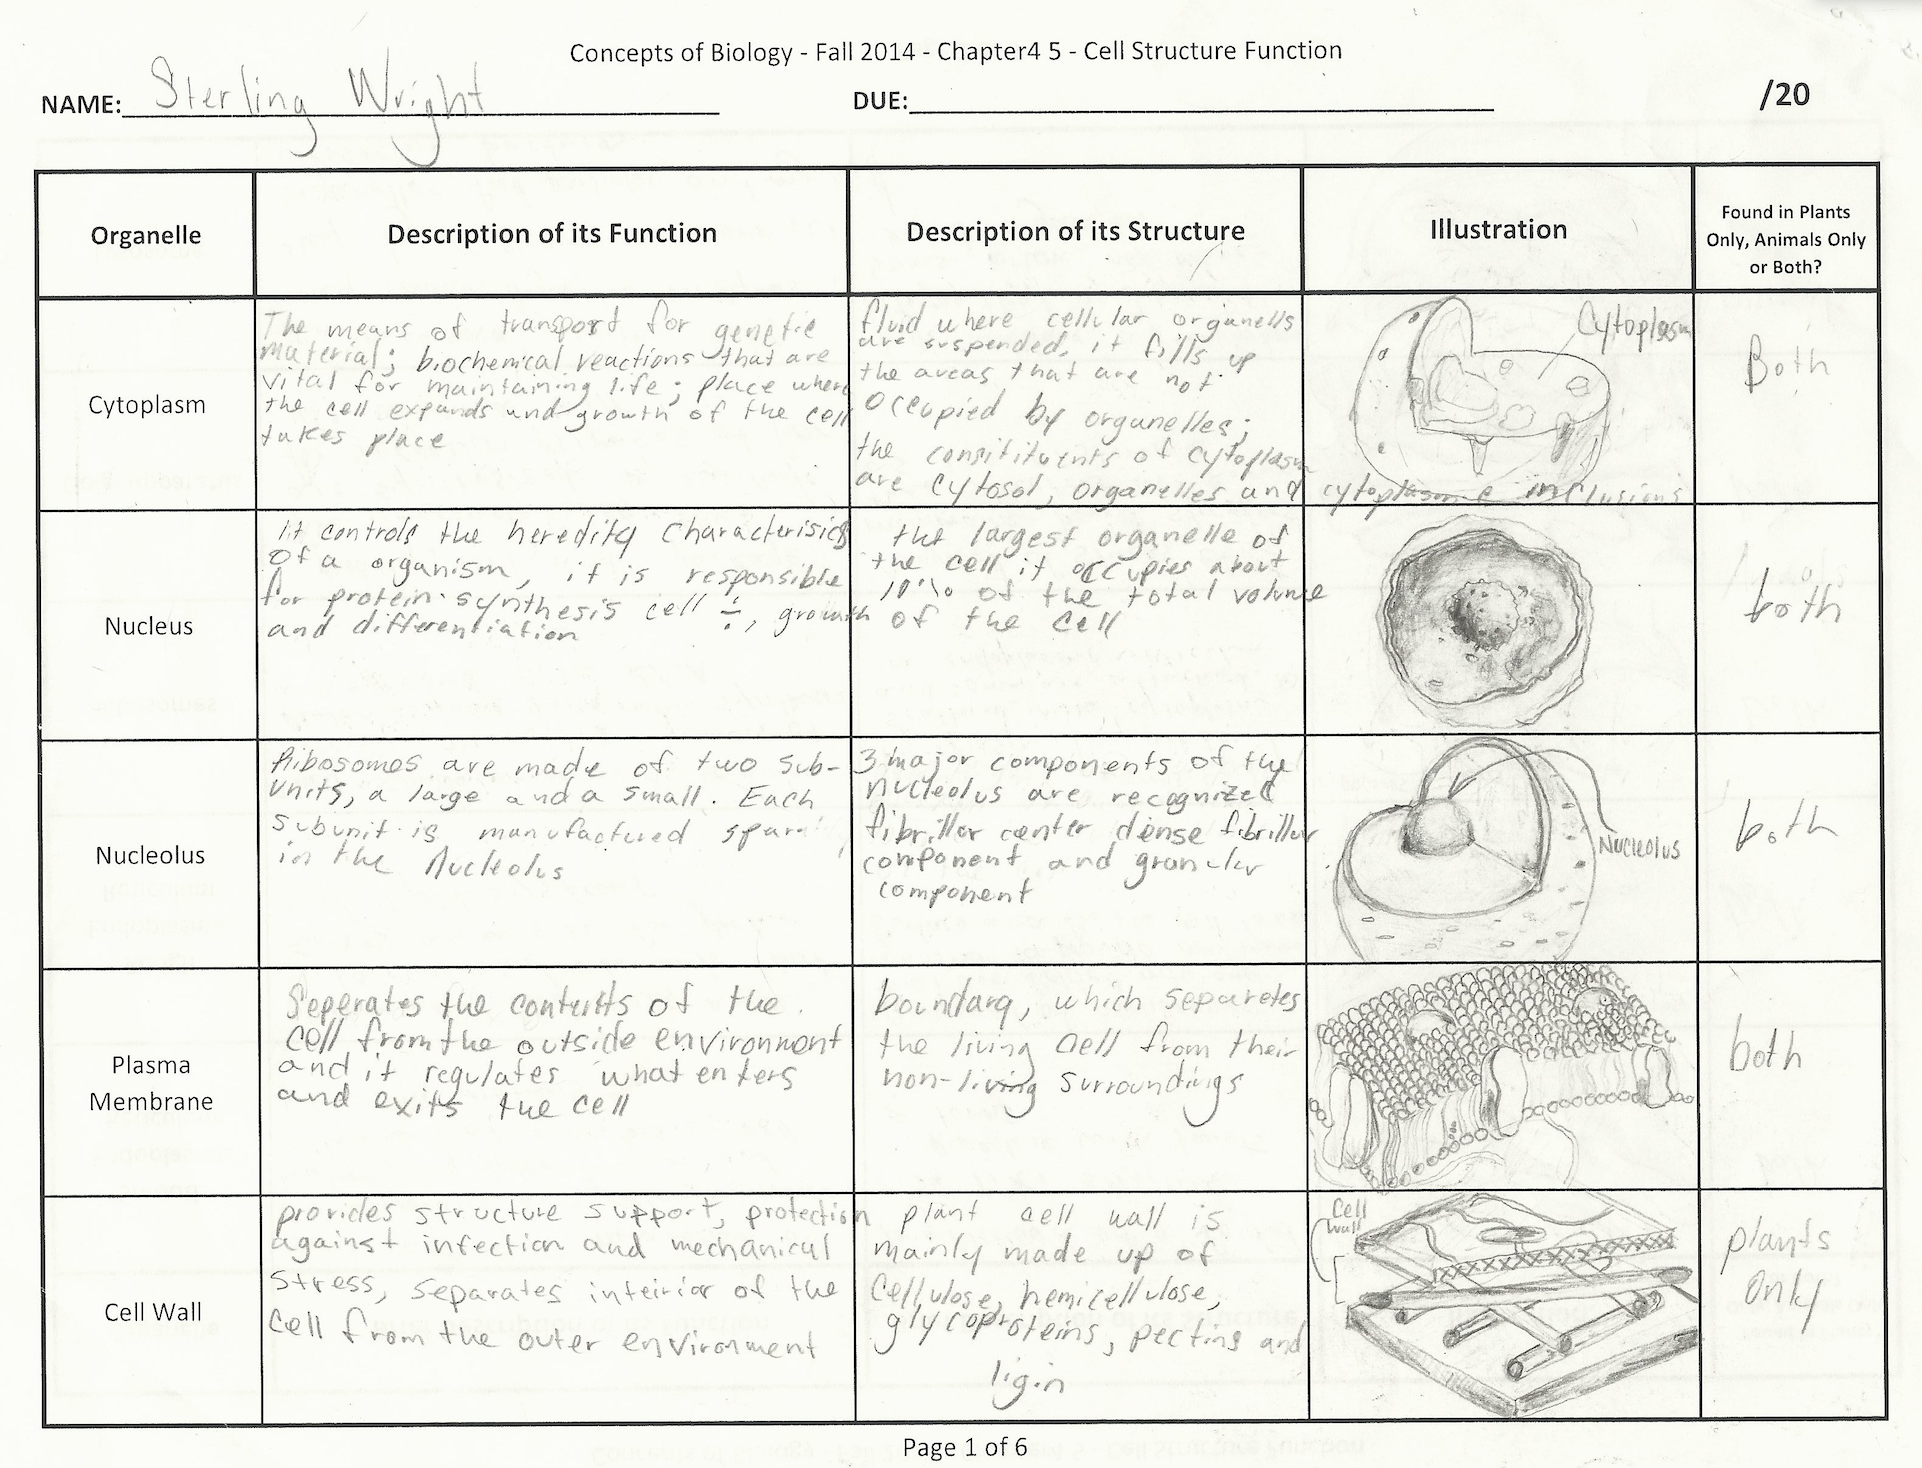 Concepts of Biology - Fall 2014 - Chapter4 5 - Cell Structure Function
NAME: Sterling Wright DUE: /20
Organelle
Description of its Function
Description of its Structure
Illustration
Found in Plants
Only, Animals Only
or Both?
Cytoplasm
The means of transport for genetic
material; biochemical reactions that are
vital for maintaining life; place where
the cell expands and growth of the cell
takes place
fluid where cellular organells
are suspended, it fills up
the areas that are not
occupied by organelles;
the consitituents of cytoplasm
are cytosol, organelles and cytoplasmic inclusions
Cytoplasm
Both
Nucleus
It controls the heredity characterisics
of a organism, it is responsible
for protein synthesis cell ÷, growth
and differentiation
the largest organelle of
the cell it occupies about
10% of the total volume
of the cell
both
Nucleolus
Ribosomes are made of two sub-
units, a large and a small. Each
subunit is manufactured
in the Nucleolus
3 major components of the
nucleolus are recognized
fibrillar center dense fibrillar
component and granular
component
Nucleolus
both
Plasma
Membrane
Seperates the contents of the
cell from the outside environment
and it regulates what enters
and exits the cell
boundary, which separetes
the living cell from their
non-living surroundings
both
Cell Wall
provides structure support, protection
against infection and mechanical
stress, separates inteirior of the
cell from the outer environment
plant cell wall is
mainly made up of
cellulose, hemicellulose,
glycoproteins, pectins and
ligin
Cell
wall
plants
only
Page 1 of 6